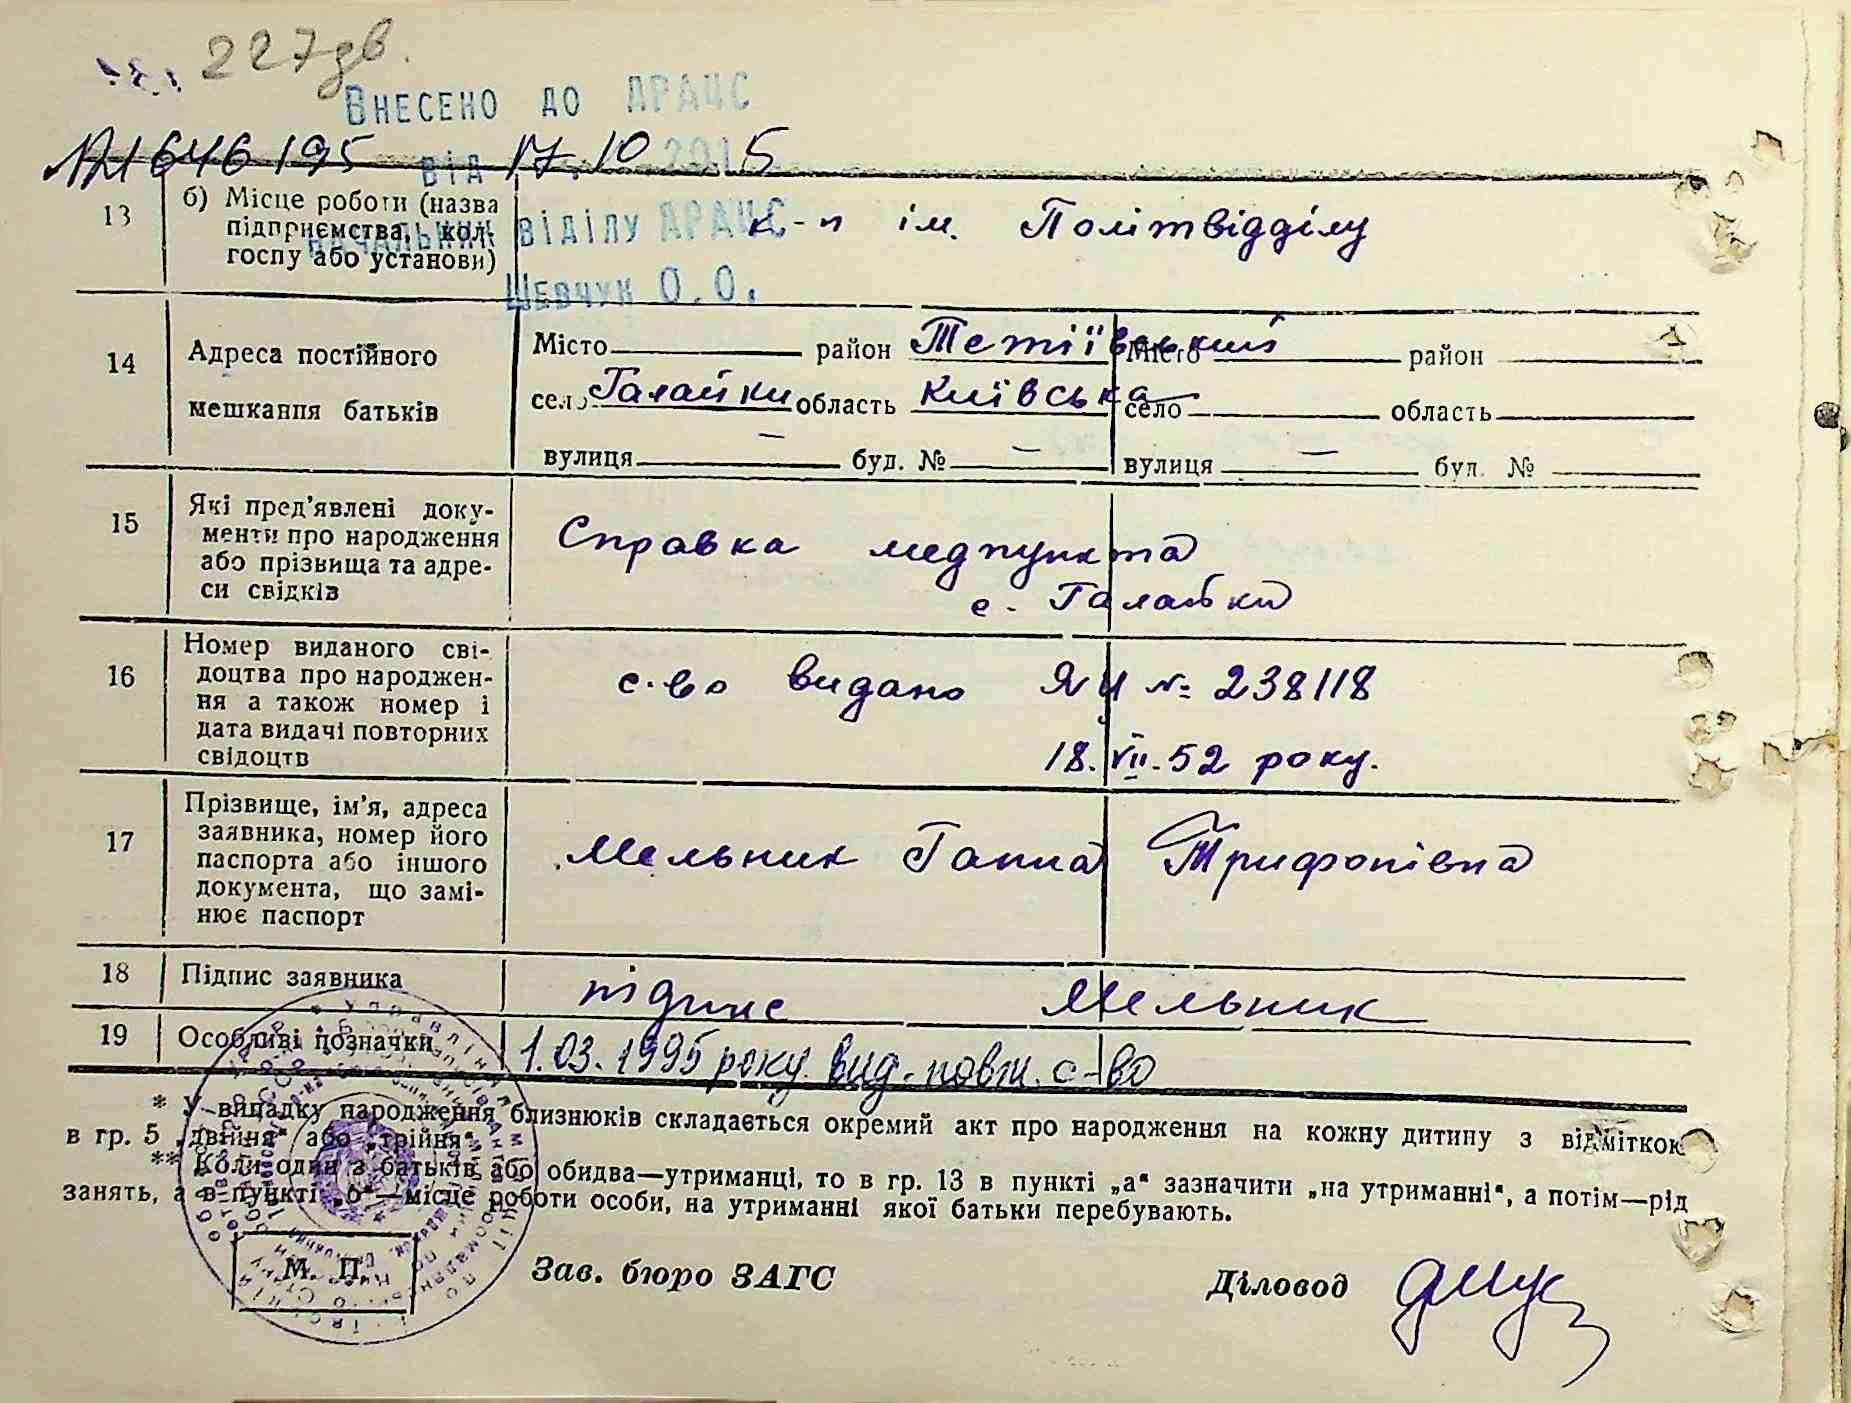 227дв.
Внесено до ДРАЦС
№1646195 від 17.10 2015
начальник відділу ДРАЦС
Шевчук О.О.
13 б) Місце роботи (назва підприємства, кол- госпу або установи) к-п ім. Політвідділу
14 Адреса постійного мешкання батьків
Місто район Тетіївський Місто район
село Галайки область Київська село область
вулиця — буд. № — вулиця — буд. №
15 Які пред'явлені доку-
менти про народження
або прізвища та адре-
си свідків
Справка медпункта
с. Галайки
16 Номер виданого сві-
доцтва про народжен-
ня а також номер і
дата видачі повторних
свідоцтв
с-во видано ЯЦ № 238118
18. VII. 52 року.
17 Прізвище, ім'я, адреса
заявника, номер його
паспорта або іншого
документа, що замі-
нює паспорт
Мельник Ганна Трифонівна
18 Підпис заявника підпис Мельник
19 Особливі позначки 1.03.1995 року вид. повт. с-во
* У випадку народження близнюків складається окремий акт про народження на кожну дитину з відміткою
в гр. 5 „двійня“ або „трійня“.
** Коли один з батьків або обидва—утриманці, то в гр. 13 в пункті „а“ зазначити „на утриманні“, а потім—рід
занять, а в пункті „б“—місце роботи особи, на утриманні якої батьки перебувають.
М. П.
Зав. бюро ЗАГС Діловод